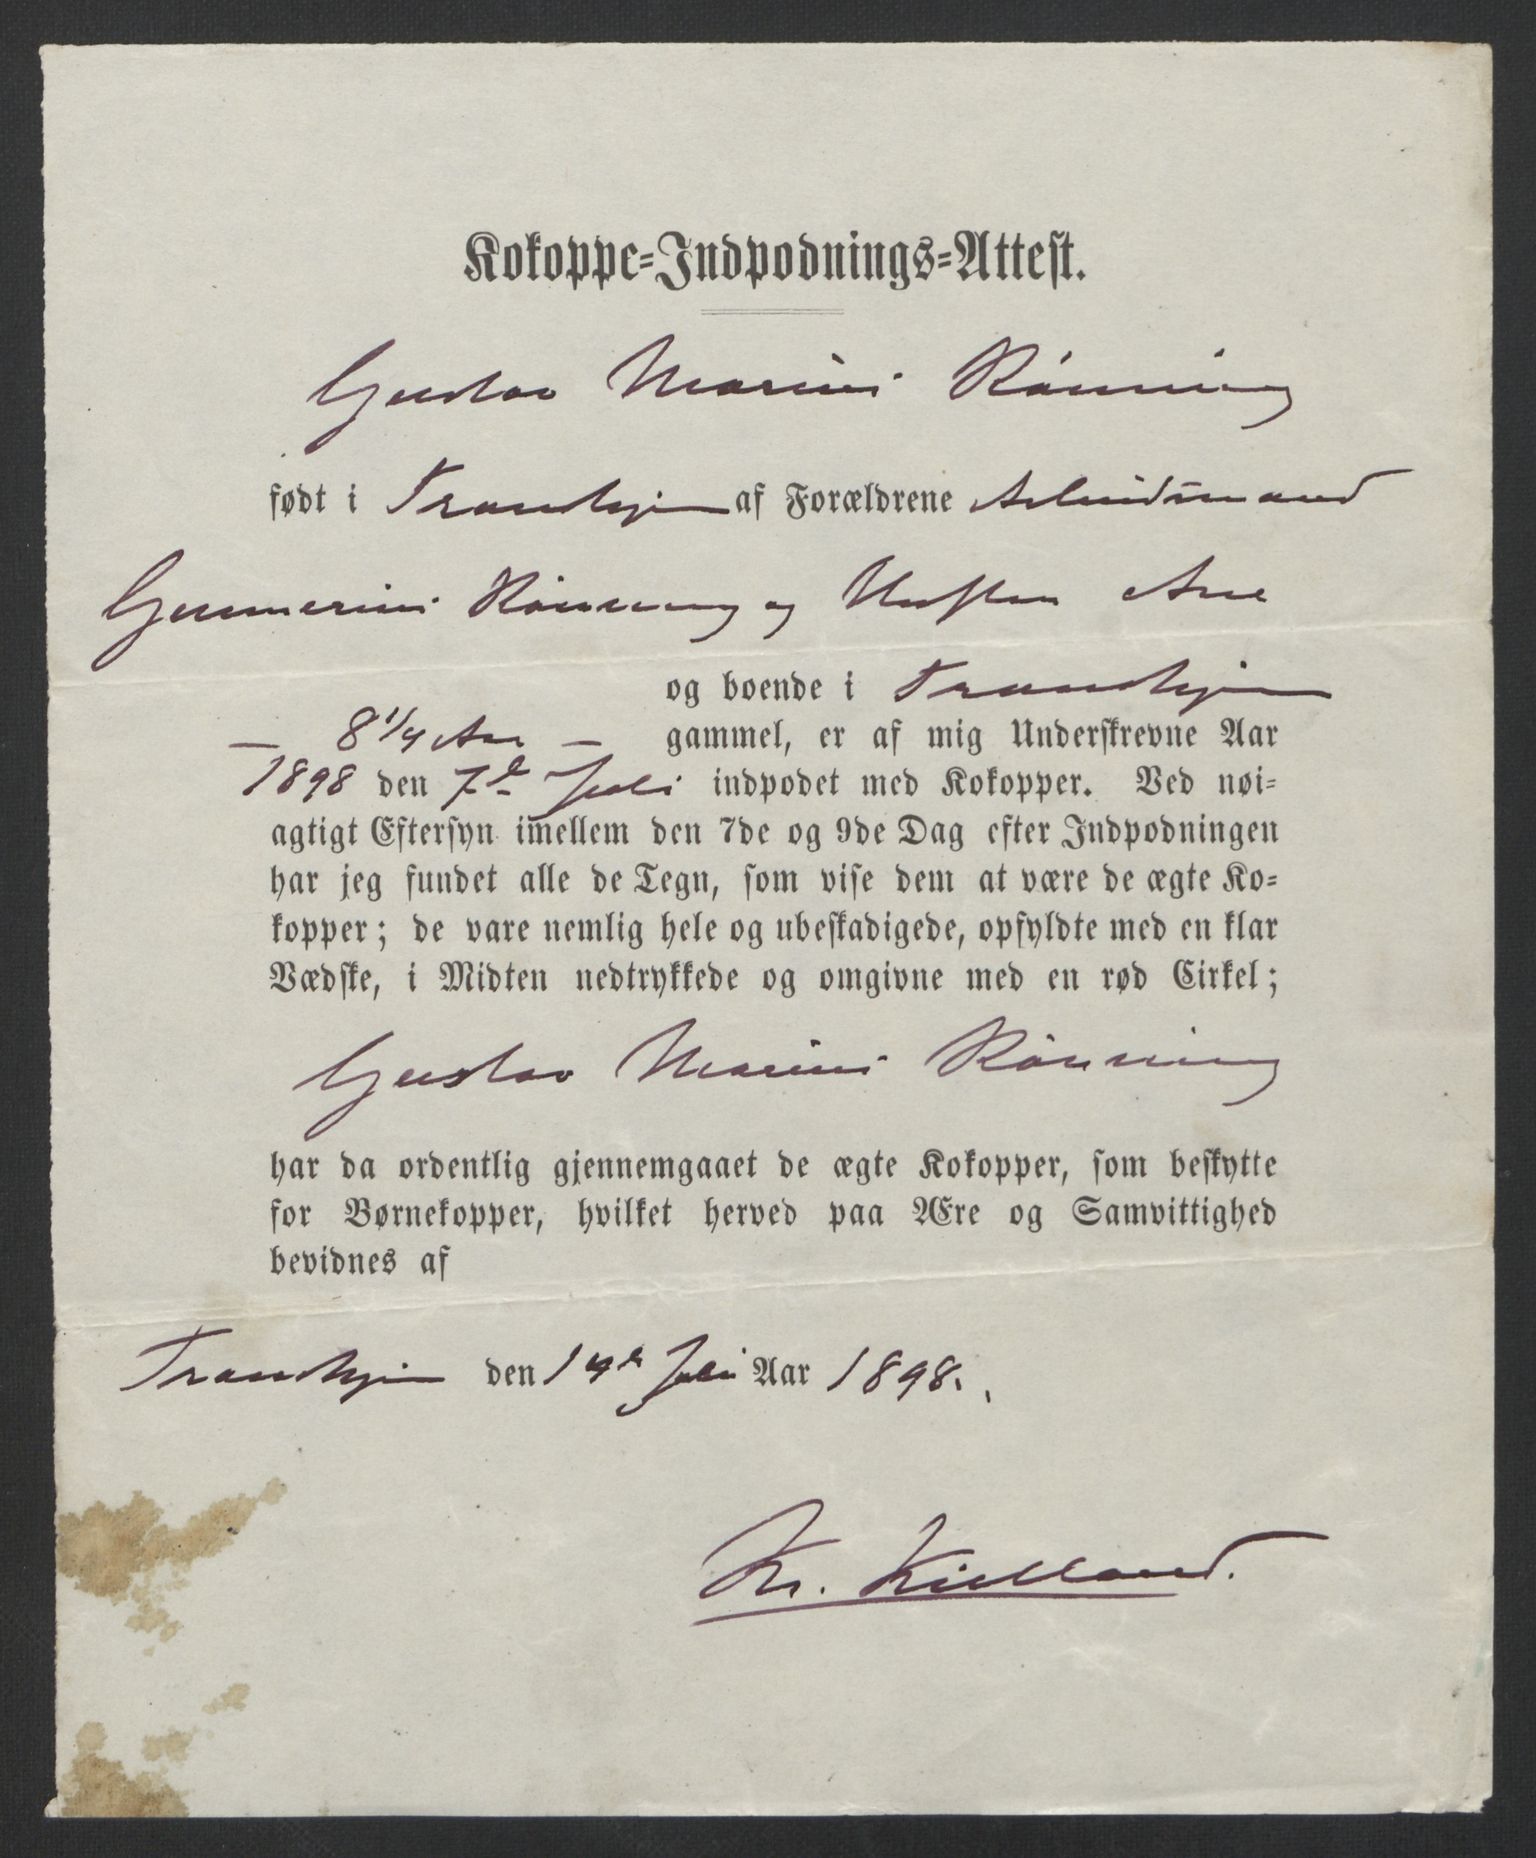 Kokoppe-Indpodnings-Attest.
Gustav Marius Rönning
født i Trondhjem af Forældrene Arbeidsmand
Gunnerius Rönning og Hustru
og boende i Trondhjem
— 8 1/4 Aar — gammel, er af mig Underskrevne Aar
1898 den 7de Juli indpodet med Kokopper. Ved nøi-
agtigt Eftersyn imellem den 7de og 9de Dag efter Indpodningen
har jeg fundet alle de Tegn, som vise dem at være de ægte Ko-
kopper; de vare nemlig hele og ubeskadigede, opfyldte med en klar
Vædske, i Midten nedtrykkede og omgivne med en rød Cirkel;
Gustav Marius Rönning
har da ordentlig gjennemgaaet de ægte Kokopper, som beskytte
for Børnekopper, hvilket herved paa Ære og Samvittighed
bevidnes af
Trondhjem den 14de Juli Aar 1898.
Kr. Kielland.